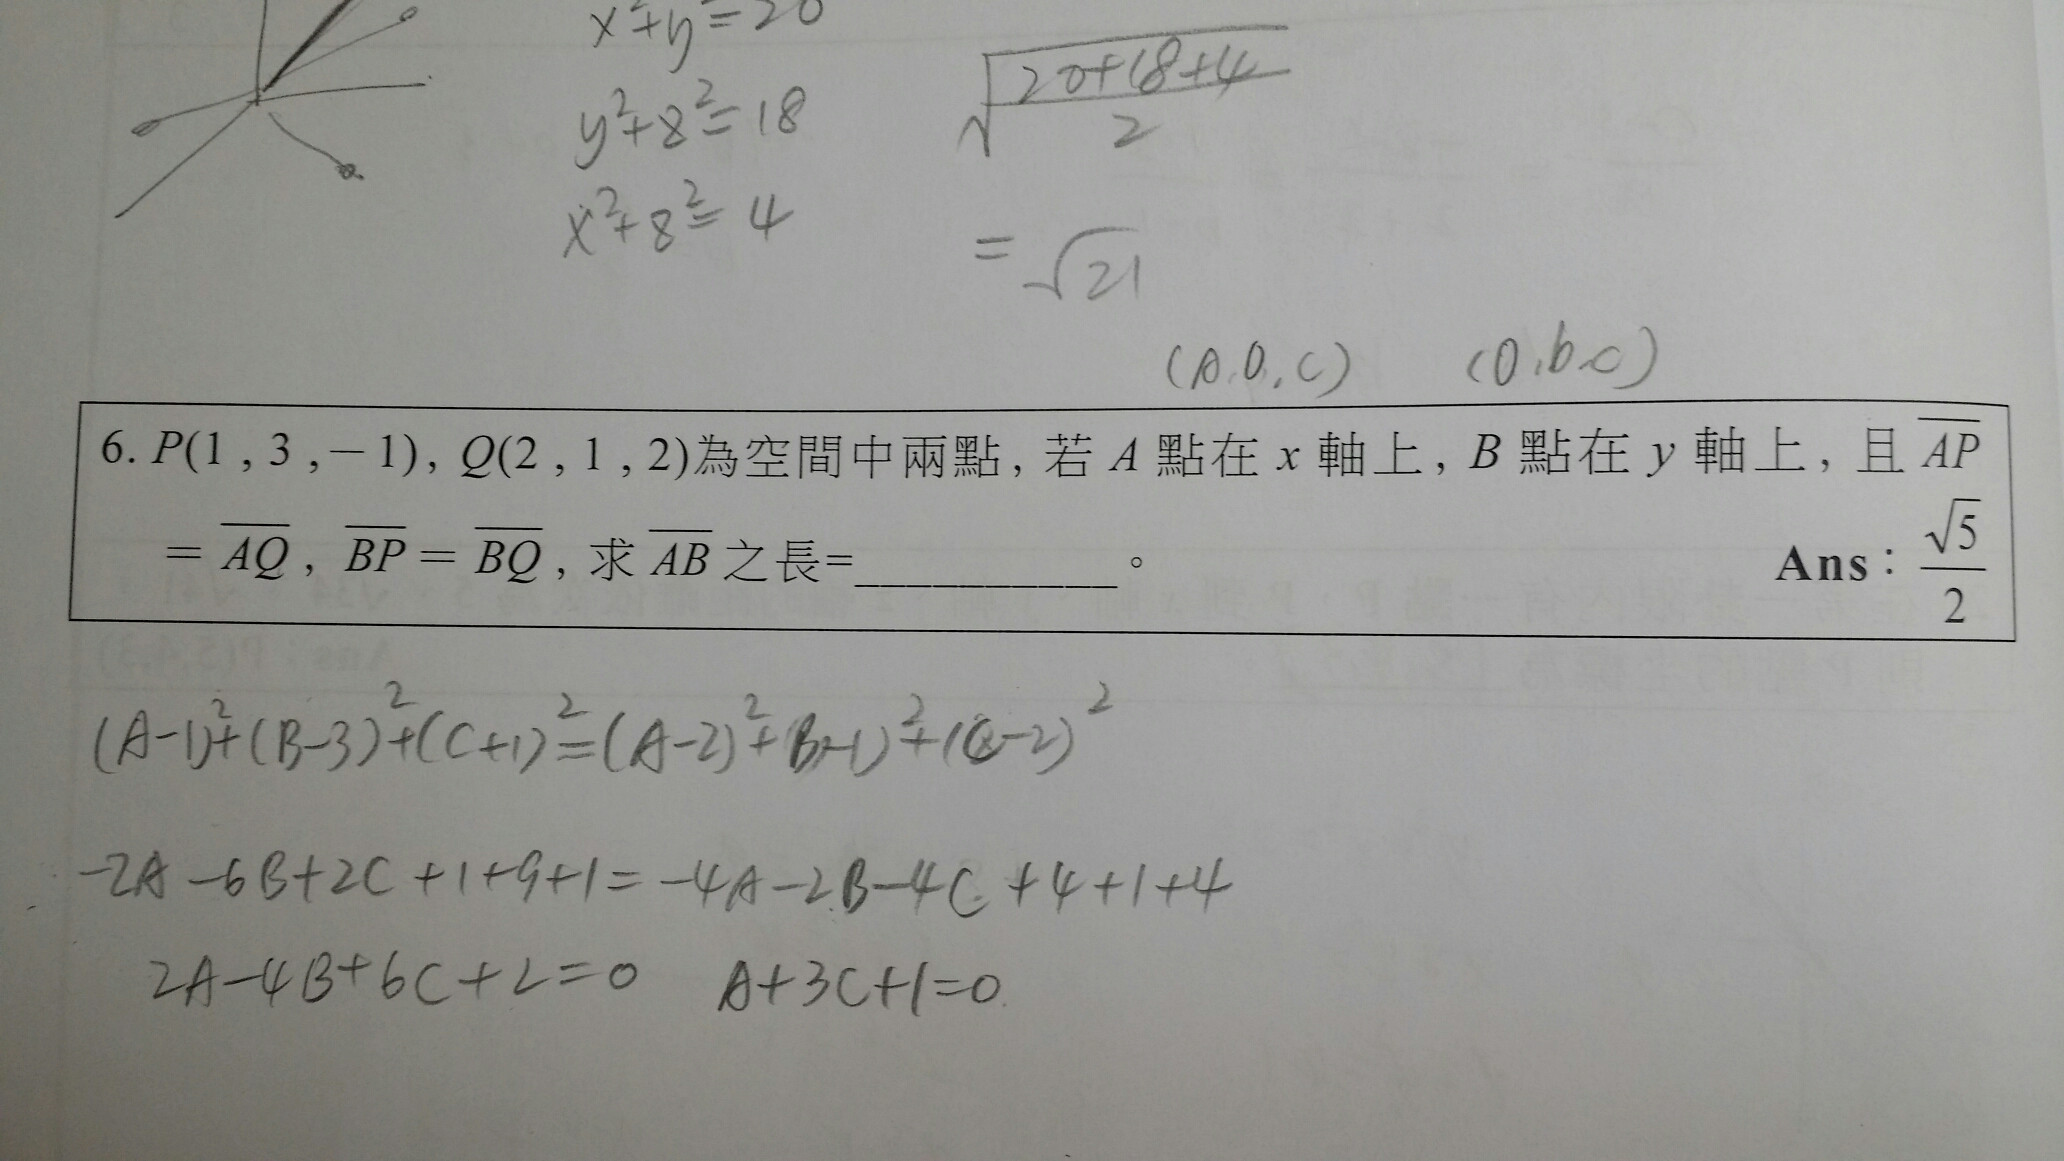 x²+y²=20
y²+8²=18
x²+8²=4
√(20+18+4 / 2)
=√21
(A,0,C) (0,b,c)
6. P(1 , 3 ,－1), Q(2 , 1 , 2)為空間中兩點, 若 A 點在 x 軸上, B 點在 y 軸上, 且 AP
= AQ, BP = BQ, 求 AB 之長=__________。 Ans：√5/2
(A-1)²+(B-3)²+(C+1)²=(A-2)²+(B-1)²+(C-2)²
-2A-6B+2C+1+9+1=-4A-2B-4C+4+1+4
2A-4B+6C+2=0 A+3C+1=0